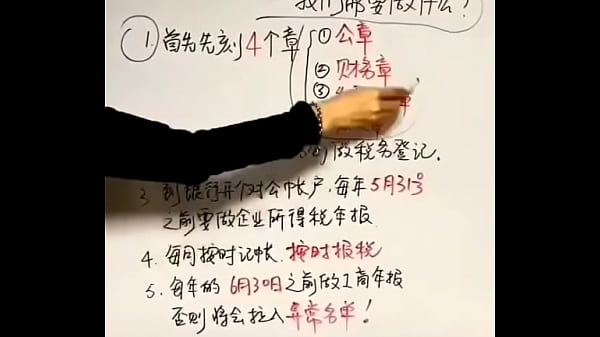 我们都要做什么?
1. 首先先刻4个章
① 公章
② 财务章
③
做税务登记.
3 到银行开个对公帐户,每年5月31号
之前要做企业所得税年报
4. 每月按时记帐.按时报税
5. 每年的6月30日之前做工商年报
否则将会拉入异常名单!